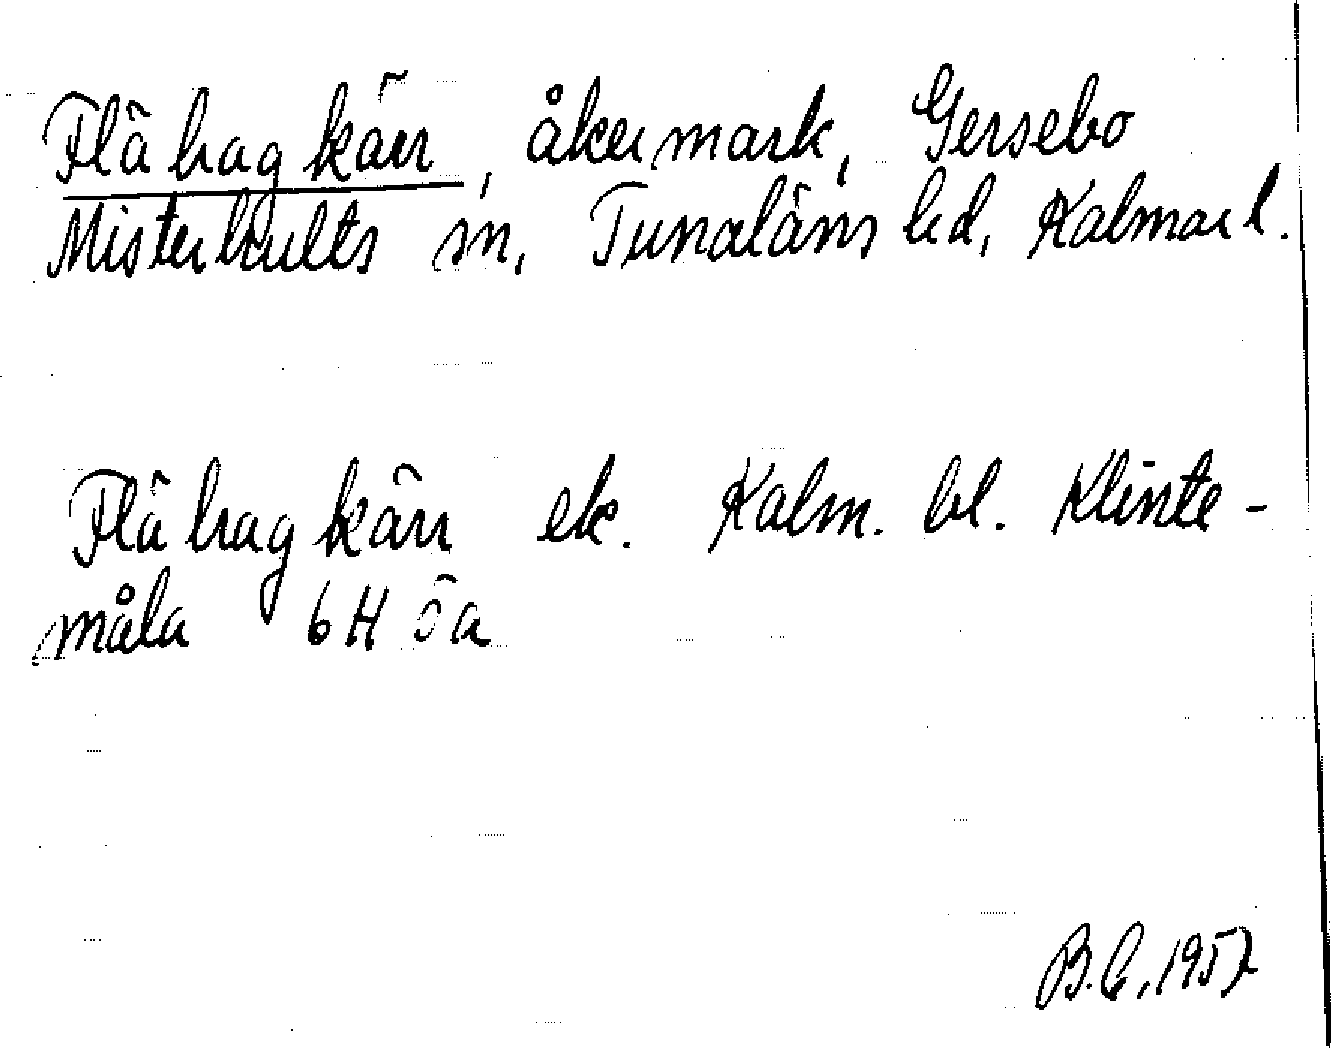 Flähagkärr, åkermark, Gersebo
Misterhults sn, Tunaläns hd, Kalmar l.
Flähagkärr ek. Kalm. bl. Klinte-
måla 6H 5a
B.C, 1957